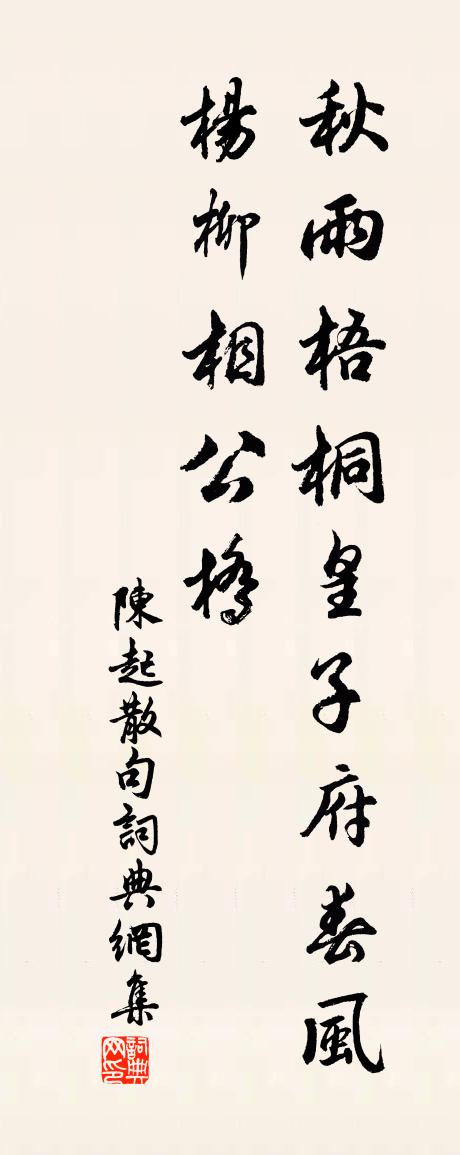 秋雨梧桐皇子府春風
楊柳相公橋
陳起散句詞典網集
詞典网印